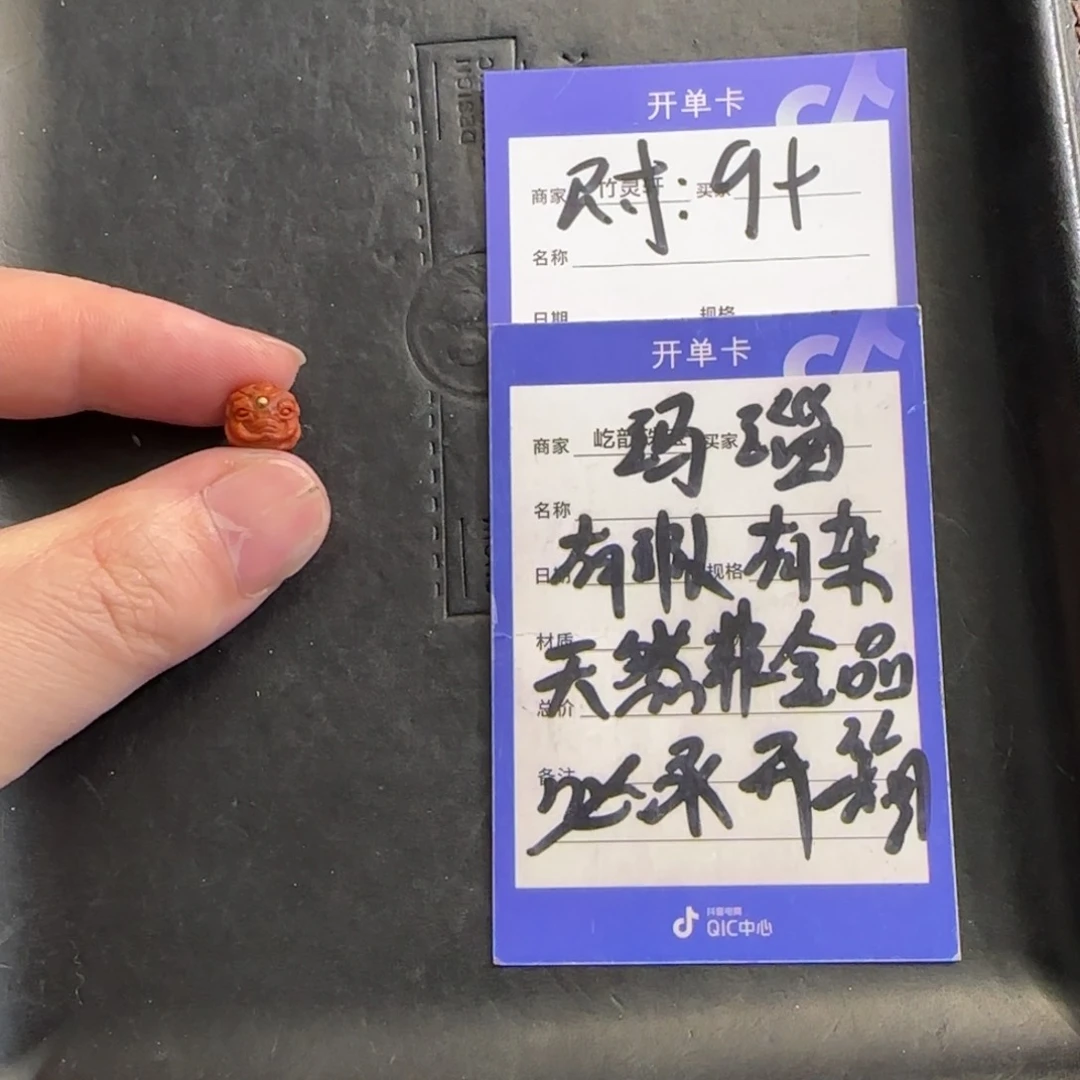 开单卡
尺寸:9+
商家 竹灵轩 买家
名称
日期 规格
开单卡
玛瑙
商家 屹韵 买家
名称
有限有杂
日期 规格
材质
天然非全品
总价
备注
抖音电商
QIC中心
DESIGN